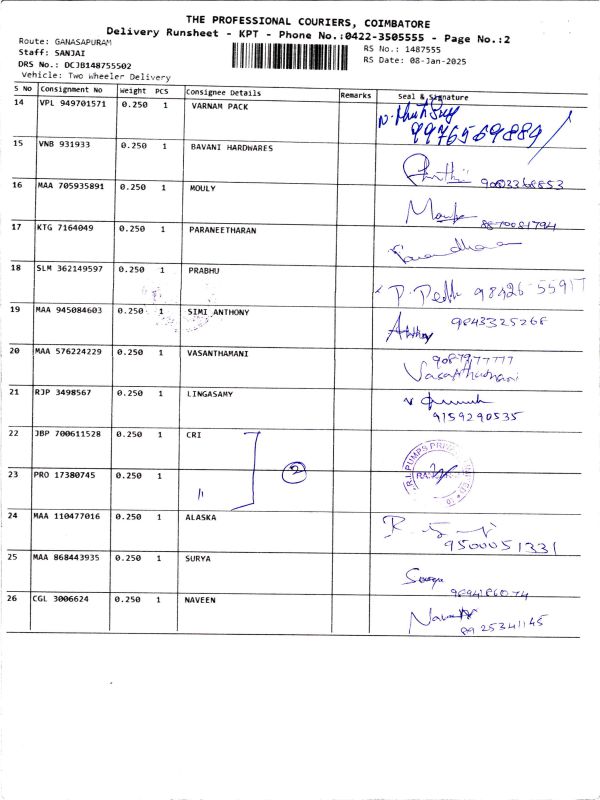 THE PROFESSIONAL COURIERS, COIMBATORE
Delivery Runsheet - KPT - Phone No.:0422-3505555 - Page No.:2
Route: GANASAPURAM
RS No.: 1487555
Staff: SANJAI
RS Date: 08-Jan-2025
DRS No.: DCJB148755502
Vehicle: Two Wheeler Delivery
S No Consignment No Weight PCS Consignee Details Remarks Seal & Signature
14 VPL 949701571 0.250 1 VARNAM PACK
9976569889
15 VNB 931933 0.250 1 BAVANI HARDWARES
9003368853
16 MAA 705935891 0.250 1 MOULY
8870081794
17 KTG 7164049 0.250 1 PARANEETHARAN
18 SLM 362149597 0.250 1 PRABHU
98426-55917
19 MAA 945084603 0.250 1 SIMI ANTHONY
9843325268
20 MAA 576224229 0.250 1 VASANTHAMANI
Vasanthamani
21 RJP 3498567 0.250 1 LINGASAMY
9159290535
22 JBP 700611528 0.250 1 CRI
2
23 PRO 17380745 0.250 1 "
24 MAA 110477016 0.250 1 ALASKA
9500051331
25 MAA 868443935 0.250 1 SURYA
Surya
26 CGL 3006624 0.250 1 NAVEEN
8925341145